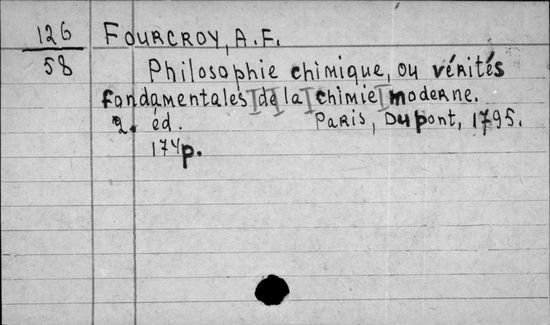 126 FOURCROY, A.F.
58 Philosophie chimique, ou vérités
fondamentales de la chimie moderne.
2. éd. Paris, Dupont, 1795.
174p.